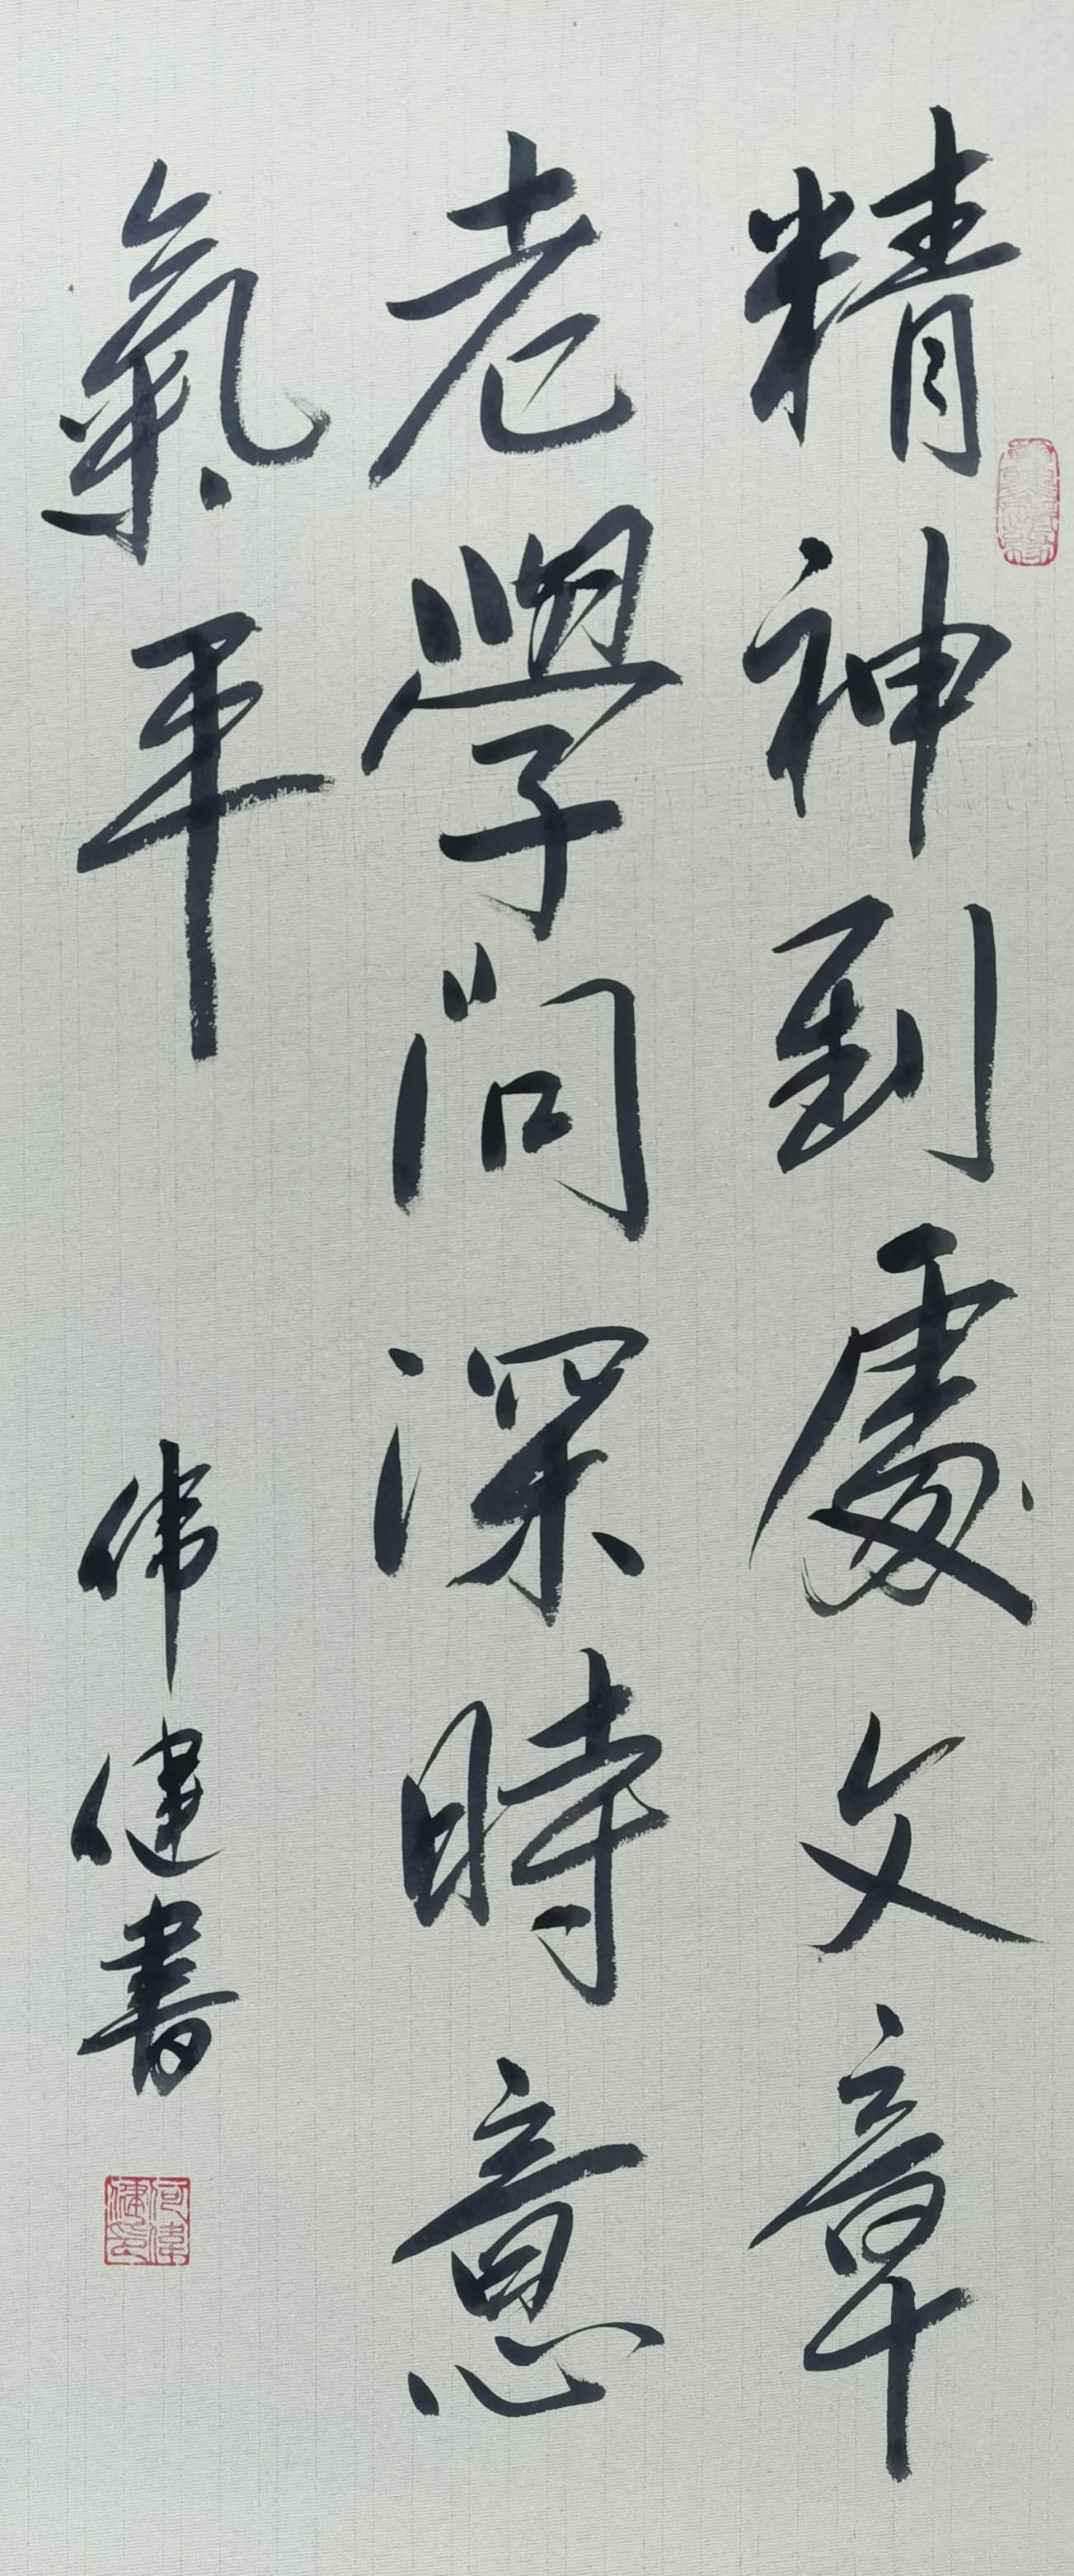 精神到處文章
老學問深時意
氣平
伟健書
何偉健印